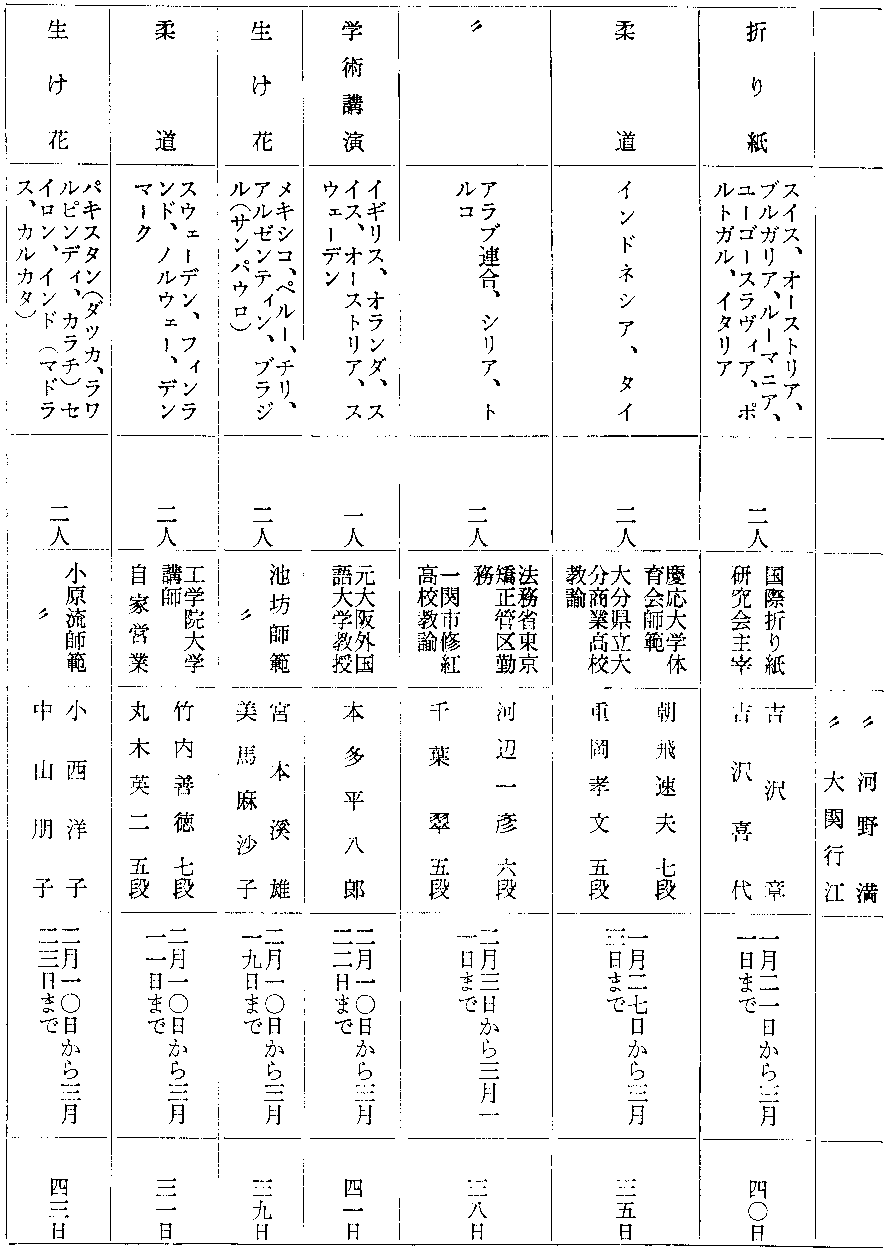 〃 河野満
〃 大関行江
折り紙
スイス、オーストリア、
ブルガリア、ルーマニア、
ユーゴースラヴィア、ポ
ルトガル、イタリア
二人
国際折り紙
研究会主宰
吉沢章
吉沢喜代
一月二一日から三月
一日まで
四〇日
柔道
インドネシア、タイ
二人
慶応大学体
育会師範
大分県立大
分商業高校
教諭
朝飛速夫 七段
重岡孝文 五段
一月二七日から三月
三日まで
三五日
〃
アラブ連合、シリア、ト
ルコ
二人
法務省東京
矯正管区勤
務
一関市修紅
高校教諭
河辺一彦 六段
千葉翠 五段
二月三日から三月一
一日まで
三八日
学術講演
イギリス、オランダ、ス
イス、オーストリア、ス
ウェーデン
一人
元大阪外国
語大学教授
本多平八郎
二月一〇日から三月
二二日まで
四一日
生け花
メキシコ、ペルー、チリ、
アルゼンティン、ブラジ
ル(サンパウロ)
二人
池坊師範
〃
宮本溪雄
美馬麻沙子
二月一〇日から三月
一九日まで
三九日
柔道
スウェーデン、フィンラ
ンド、ノルウェー、デン
マーク
二人
工学院大学
講師
自家営業
竹内善徳 七段
丸木英二 五段
二月一〇日から三月
一一日まで
三一日
生け花
パキスタン(ダッカ、ラワ
ルピンディ、カラチ)セ
イロン、インド(マドラ
ス、カルカタ)
二人
小原流師範
〃
小西洋子
中山朋子
二月一〇日から三月
二三日まで
四二日